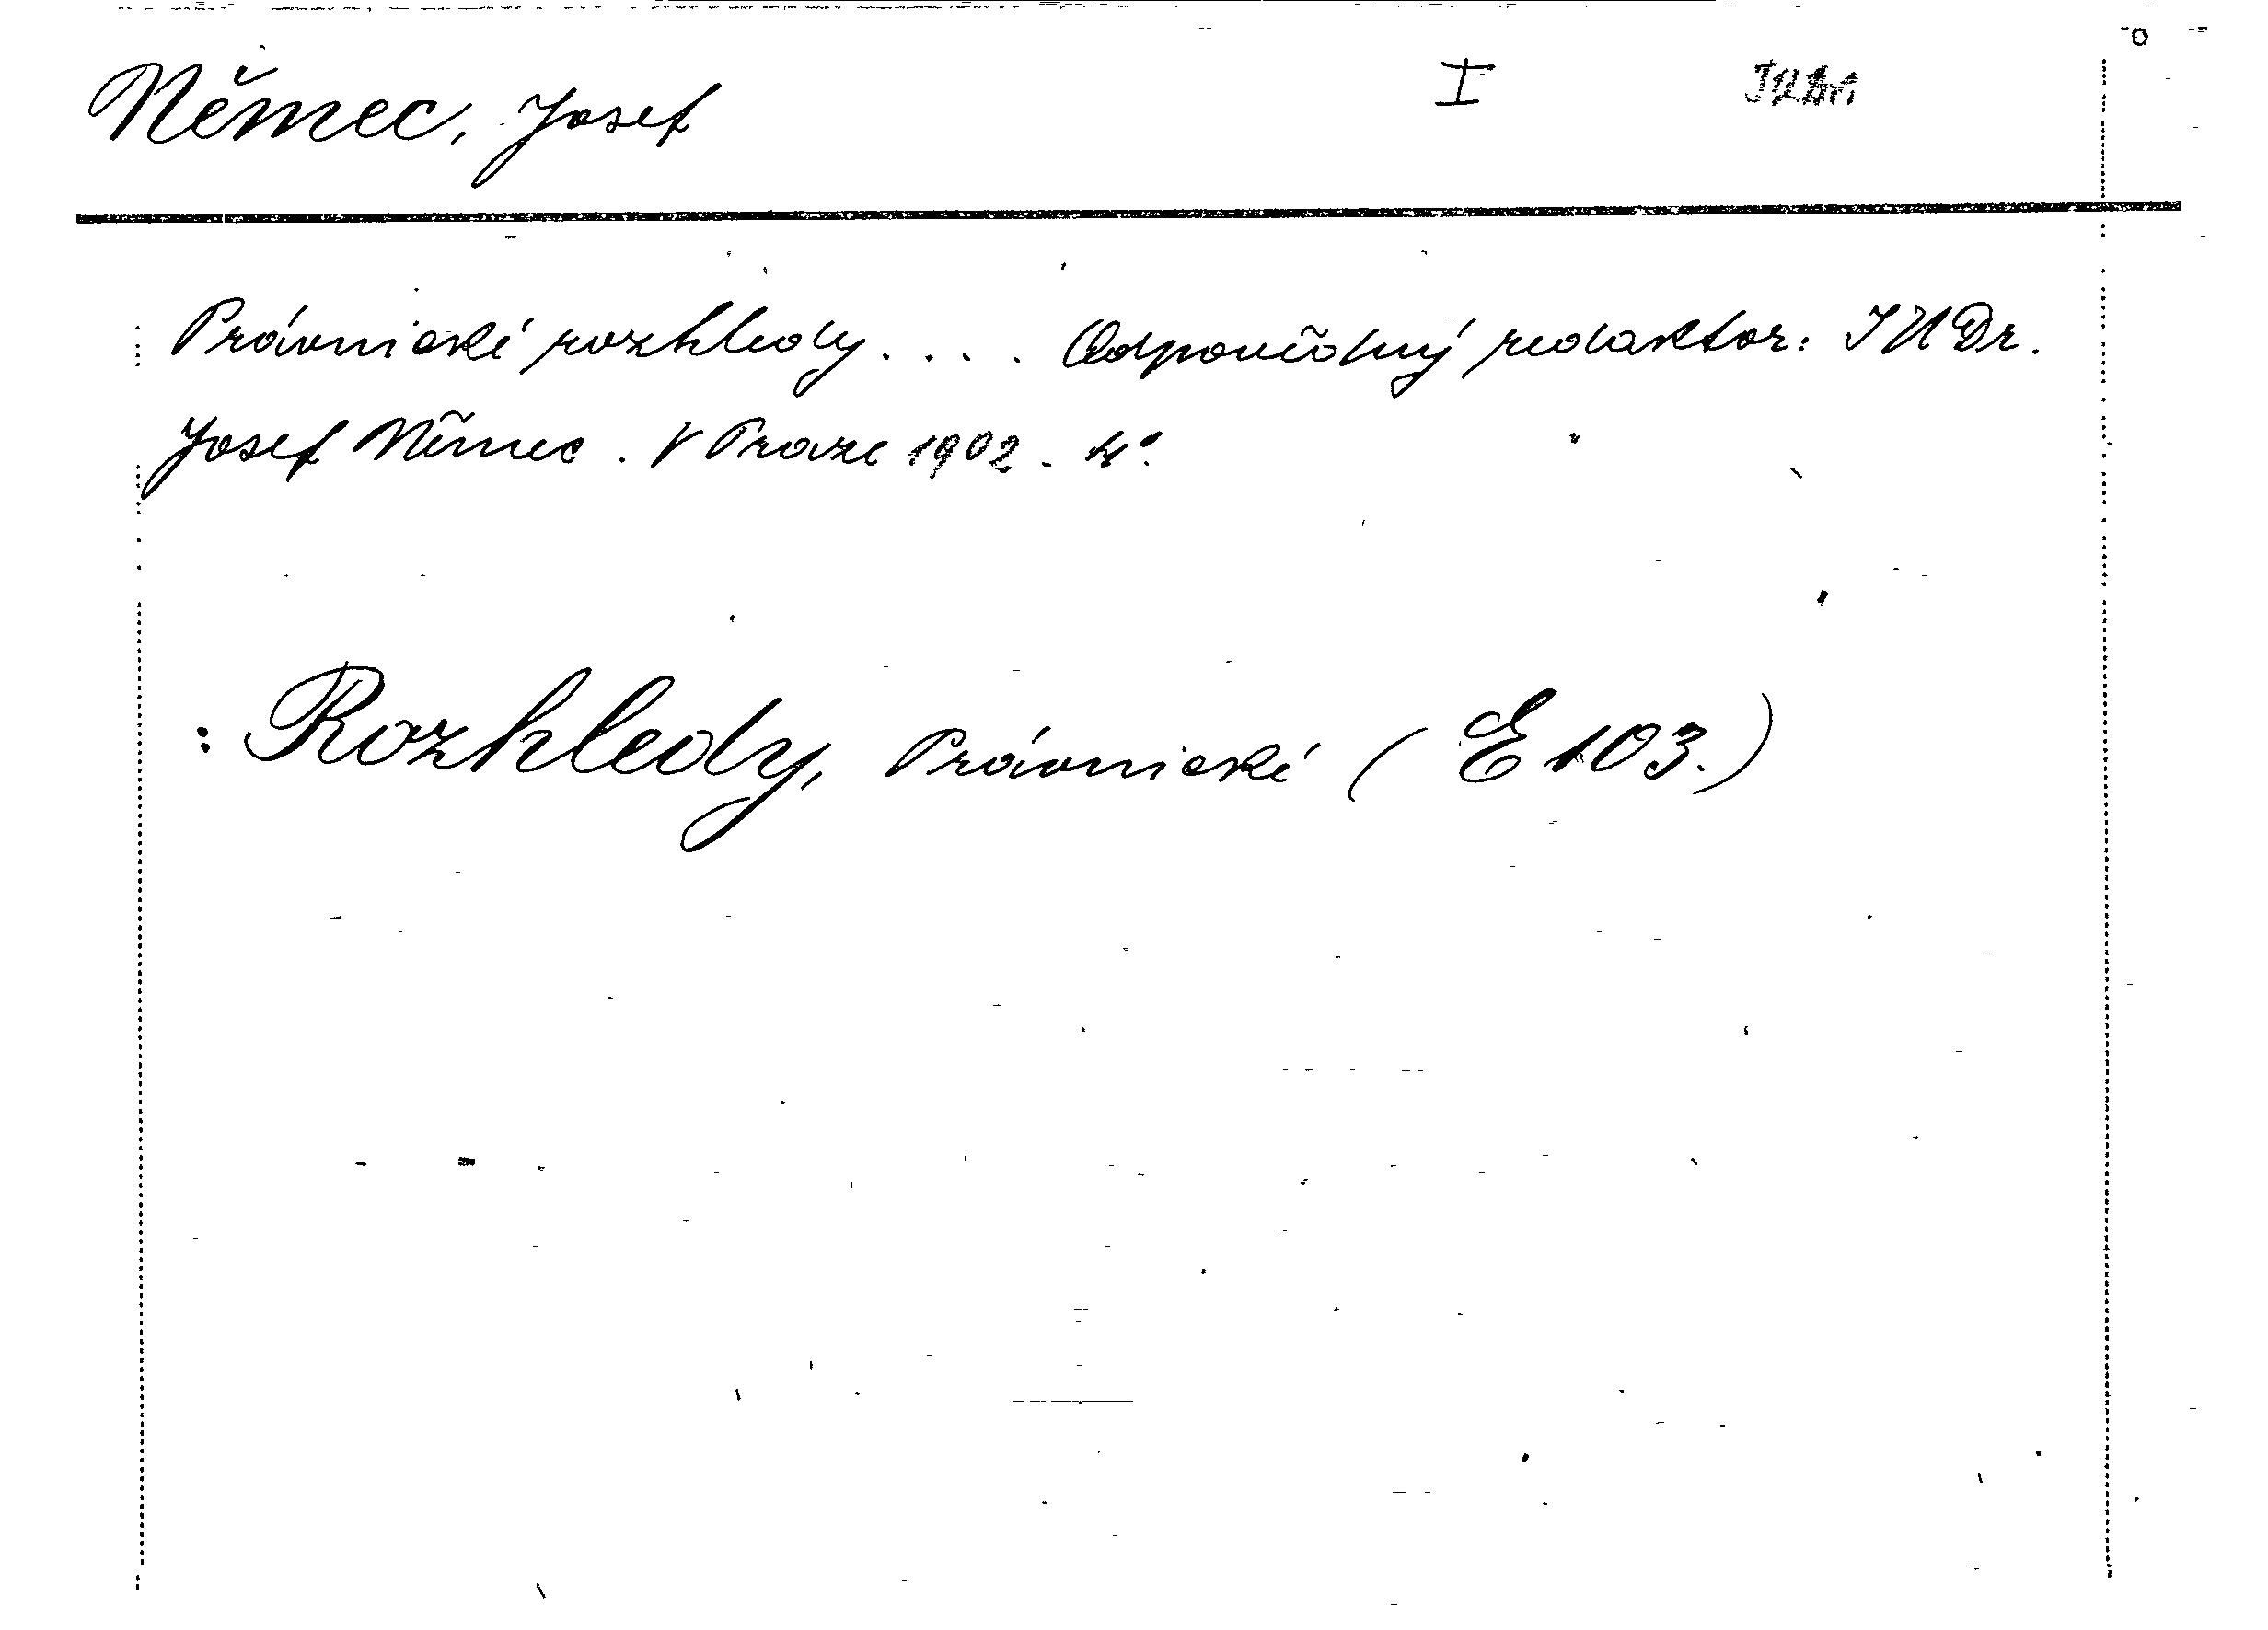 Němec, Josef I JUDr.
Právnické rozhledy. . . . Odpovědný redaktor: JUDr.
Josef Němec. V Praze 1902. 4°.
: Rozhledy, Právnické (E 103.)